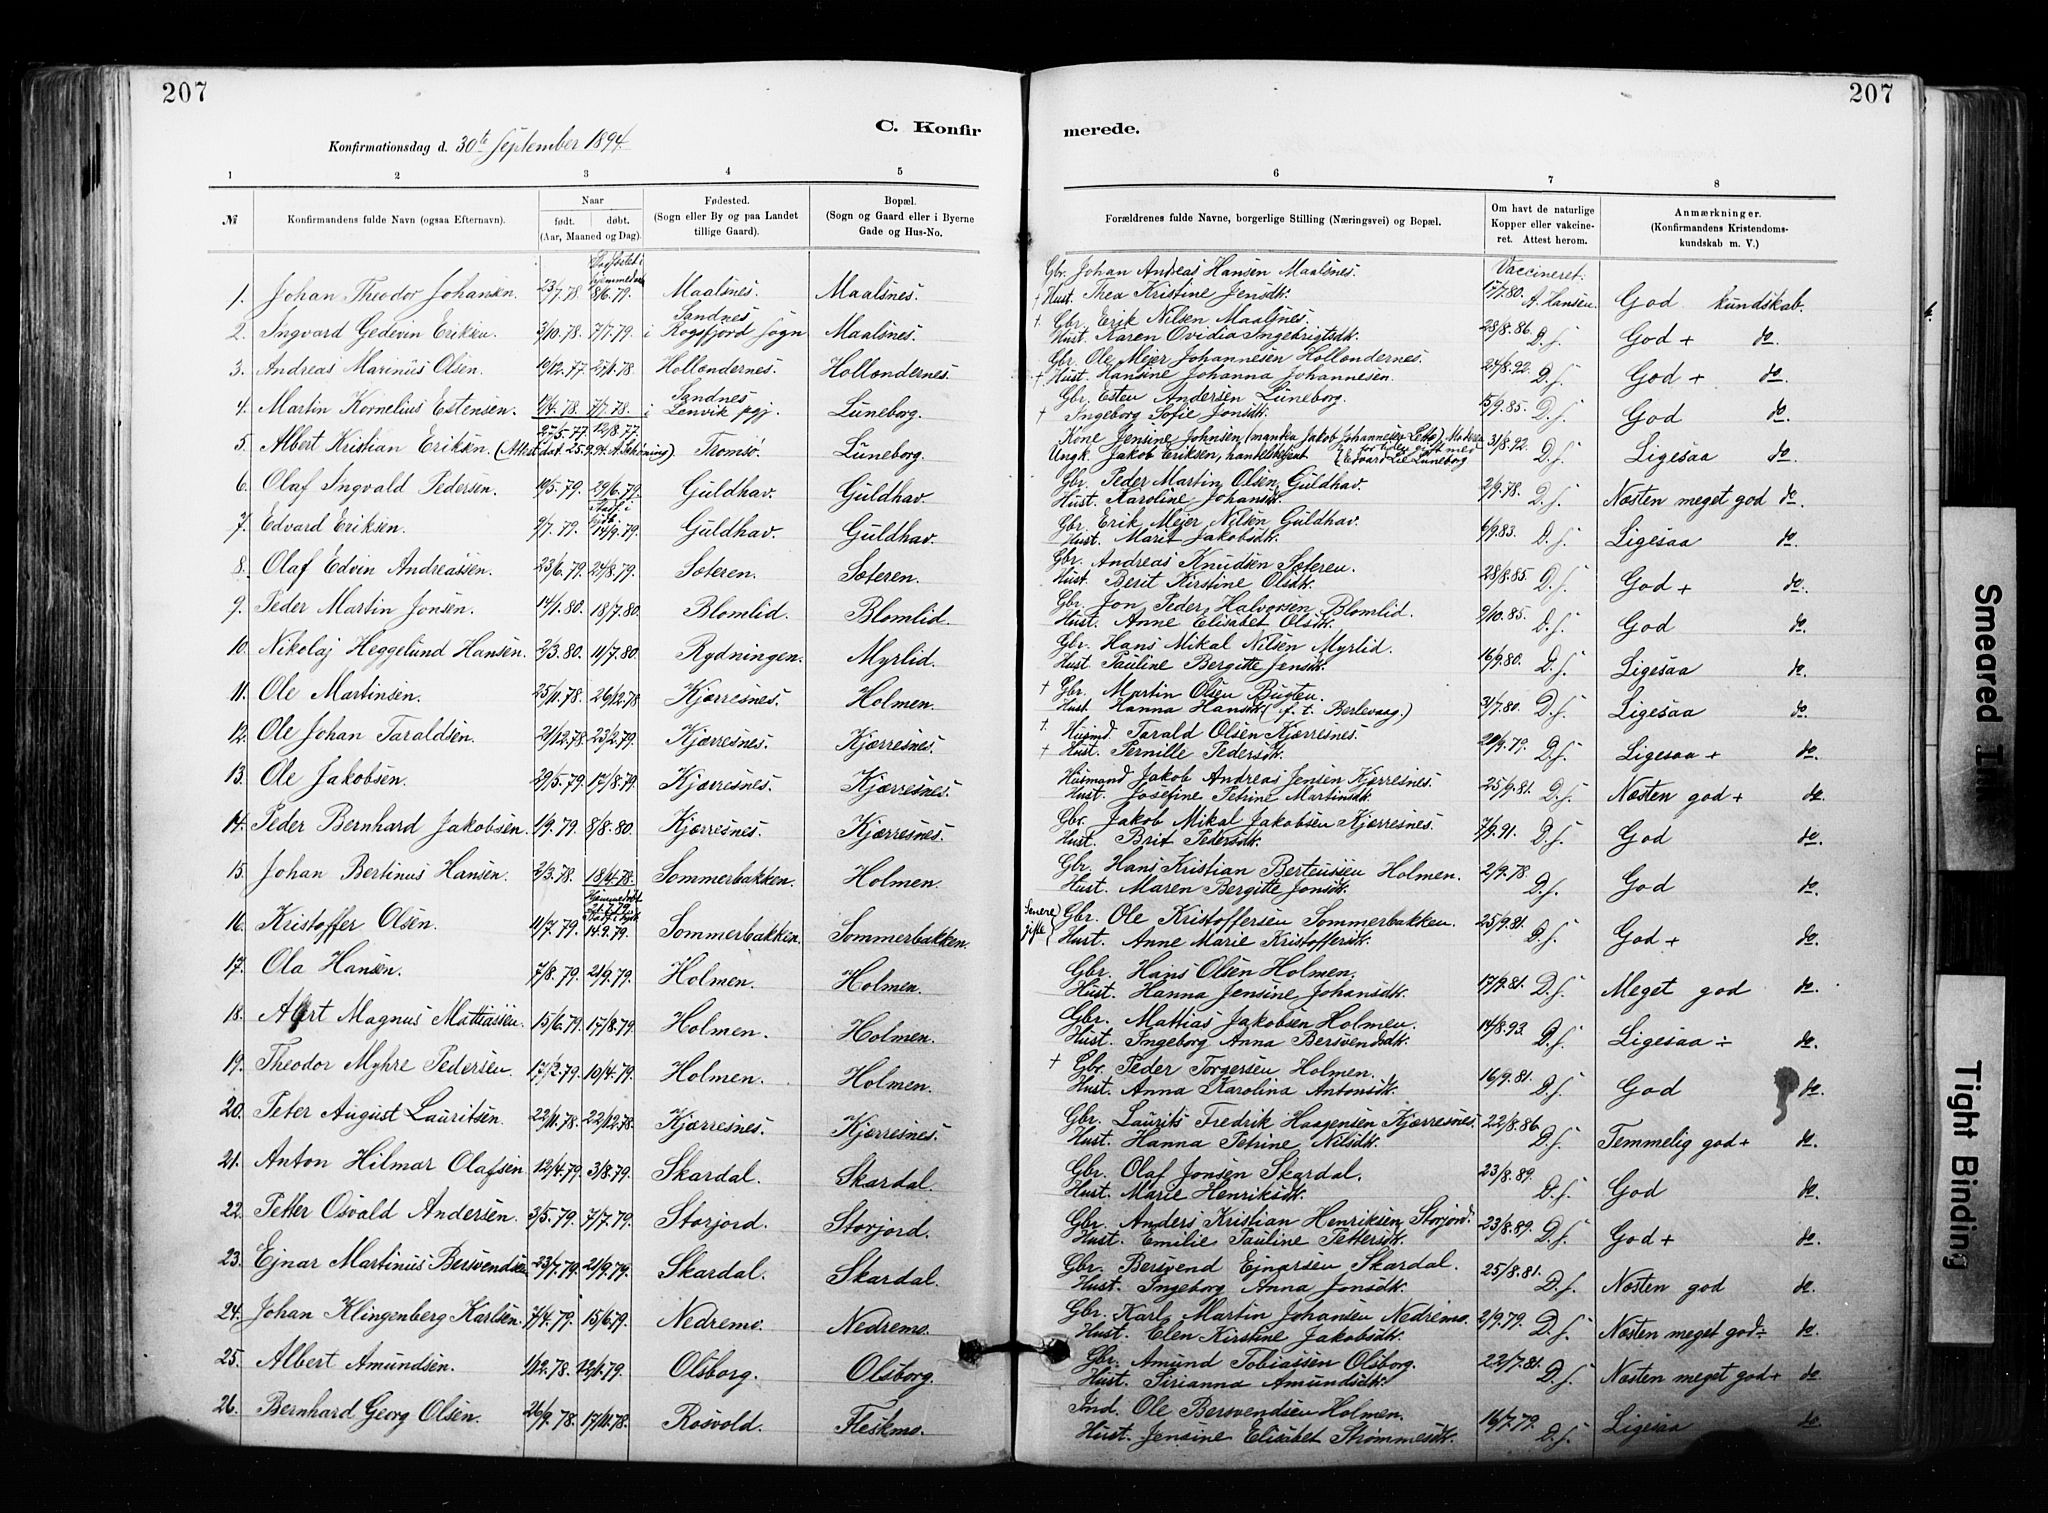 207
207
C. Konfirmerede.
Konfirmationsdag d. 30te September 1894.
1 2 3 4 5 6 7 8
№ Konfirmandens fulde Navn (ogsaa Efternavn). Naar født. døbt. (Aar, Maaned og Dag). Fødested. (Sogn eller By og paa Landet tillige Gaard). Bopæl. (Sogn og Gaard eller i Byerne Gade og Hus-No. Forældrenes fulde Navne, borgerlige Stilling (Næringsvei) og Bopæl. Om havt de naturlige Kopper eller vakcineret. Attest herom. Anmærkninger. (Konfirmandens Kristendomskundskab m. V.)
1. Johan Theodor Johansen. 23/7.78. 8/6.79. Maalsnes. Maalsnes. Gbr. Johan Andreas Hansen Maalsnes. Vaccineret:
+ Hust. Thea Kristine Jensdtr. 17/7.80. A. Hansen. God kundskab.
2. Ingvard Gedevin Eriksen 3/10.78. 7/7.79. Sandnes i Rogsfjord Sogn Maalsnes. + Gbr. Erik Nilsen Maalsnes.
Hust. Karen Ovidia Ingebrigtsdtr. 28/8.86. D.f. God + do.
3. Andreas Marinus Olsen. 19/12.77. 27/1.78. Hollondernes. Hollondernes. Gbr. Ole Mejer Johannesen Hollondernes.
+ Hust. Hansine Johanna Johannesen. 24/8.92. D.f. God + do.
4. Martin Kornelius Estensen. 1/4.78. 7/7.78. Sandnes i Lenvik pgj. Luneborg. Gbr. Esten Andersen Luneborg.
+ Ingeborg Sofie Jonsdtr. 15/9.85. D.f. God do.
5. Albert Kristian Eriksen. (Attest dat. 25.9.94 A. Schöning) 27/5.77. 12/8.77. Tromsø. Luneborg. Kone Jensine Johnsen,
Ungk. Jakob Eriksen, handelsbetjent 31/8.92. D.f. Ligesaa do.
6. Olaf Ingvald Pedersen. 10/5.79. 29/6.79. Guldhav. Guldhav. Gbr. Peder Martin Olsen Guldhav.
Hust. Karoline Johansdtr. 2/9.78. D.f. Næsten meget god do.
7. Edvard Eriksen. 9/7.79. 14/9.79. Guldhav. Guldhav. Gbr. Erik Mejer Nilsen Guldhav.
Hust. Marit Jakobsdtr. 6/9.83. D.f. Ligesaa do.
8. Olaf Edvin Andreassen. 23/6.79. 24/8.79. Sæteren. Sæteren. Gbr. Andreas Knudsen Sæteren.
Hust. Berit Kirstine Olsdtr. 28/8.85. D.f. God + do.
9. Peder Martin Jonsen. 14/1.80. 18/7.80. Blomlid. Blomlid. Gbr. Jon Peder Halvorsen Blomlid.
Hust. Anne Elisabet Olsdtr. 9/10.85. D.f. God do.
10. Nikolaj Heggelund Hansen. 2/3.80. 11/7.80 Rydningen. Myrlid. Gbr. Hans Mikal Nilsen Myrlid.
Hust. Pauline Bergitte Jensdtr. 16/9.80. D.f. Ligesaa do.
11. Ole Martinsen. 25/11.78. 26/12.78 Kjærresnes. Holmen. + Gbr. Martin Olsen Bugten.
Hust. Hanna Hansdtr. (f. t. Berlevaag.) 31/7.80. D.f. Ligesaa do.
12. Ole Johan Taraldsen. 21/12.78. 23/2.79. Kjærresnes. Kjærresnes. + Husmd. Tarald Olsen Kjærresnes.
+ Hust. Pernille Pedersdtr. 20/9.79. D.f. Ligesaa + do.
13. Ole Jakobsen. 29/5.79. 17/8.79. Kjærresnes. Kjærresnes. Husmand Jakob Andreas Jensen Kjærresnes.
Hust. Josefine Petrine Martinsdtr. 25/9.81. D.f. Næsten god + do.
14. Peder Bernhard Jakobsen. 1/9.79. 8/8.80. Kjærresnes. Kjærresnes. Gbr. Jakob Mikal Jakobsen Kjærresnes.
Hust. Brit Pedersdtr. 7/9.91. D.f. God do.
15. Johan Bertinus Hansen. 2/3.78. 18/4.78. Sommerbakken. Holmen. Gbr. Hans Kristian Berteussen Holmen.
Hust. Maren Bergitte Jonsdtr. 2/9.78. D.f. God do.
16. Kristoffer Olsen. 11/7.79. 14.9.79. Sommerbakken. Sommerbakken. Senere gifte Gbr. Ole Kristoffersen Sommerbakken.
Hust. Anne Marie Kristoffersdtr. 25/9.81. D.f. God + do.
17. Ola Hansen. 7/8.79. 21/9.79. Holmen. Holmen. Gbr. Hans Olsen Holmen.
Hust. Hanna Jensine Johansdtr. 17/9.81. D.f. Meget god do.
18. Albert Magnus Mathiassen. 15/6.79. 17/8.79. Holmen. Holmen. Gbr. Mattias Jakobsen Holmen.
Hust. Ingeborg Anna Bersvendsdtr. 14/8.93. D.f. Ligesaa ÷ do.
19. Theodor Myhre Pedersen. 17/2.79. 10/4.79. Holmen. Holmen. + Gbr. Peder Torgersen Holmen.
Hust. Anna Karolina Antonsdtr. 16/9.81. D.f. God do.
20. Peter August Lauritsen. 22/11.78. 22/12.78. Kjærresnes. Kjærresnes. Gbr. Laurits Fredrik Haagensen Kjærresnes.
Hust. Hanna Petrine Nilsdtr. 22/8.86. D.f. Temmelig god + do.
21. Anton Hilmar Olafsen. 12/4.79. 3/8.79. Skardal. Skardal. Gbr. Olaf Jonsen Skardal.
Hust. Marie Henriksdtr. 23/8.89. D.f. God do.
22. Petter Osvald Andersen. 3/5.79. 7/7.79. Storjord. Storjord. Gbr. Anders Kristian Henriksen Storjord.
Hust. Emilie Pauline Pettersdtr. 23/8.89. D.f. God + do.
23. Ejnar Martinus Bersvendsen 23/7.79. 21/9.79. Skardal. Skardal. Gbr. Bersvend Ejnarsen Skardal.
Hust. Ingeborg Anna Jonsdtr. 25/8.81. D.f. Næsten god do.
24. Johan Klingenberg Karlsen. 7/4.79. 15/6.79. Nedremo. Nedremo. Gbr. Karl Martin Johansen Nedremo.
Hust. Elen Kirstine Jakobsdtr. 2/9.79. D.f. Næsten meget god ÷ do.
25. Albert Amundsen. 1/12.78. 12/1.79. Olsborg. Olsborg. Gbr. Amund Tobiassen Olsborg.
Hust. Sirianna Amundsdtr. 22/7.81. D.f. Næsten meget god + do.
26. Bernhard Georg Olsen. 26/9.78. 17/11.78. Rosvold. Fleskmo. Ind. Ole Bersvendsen Holmen.
Hust. Jensine Elisabet Strømmesdtr. 16/7.79. D.f. Ligesaa do.
Smeared Ink
Tight Binding